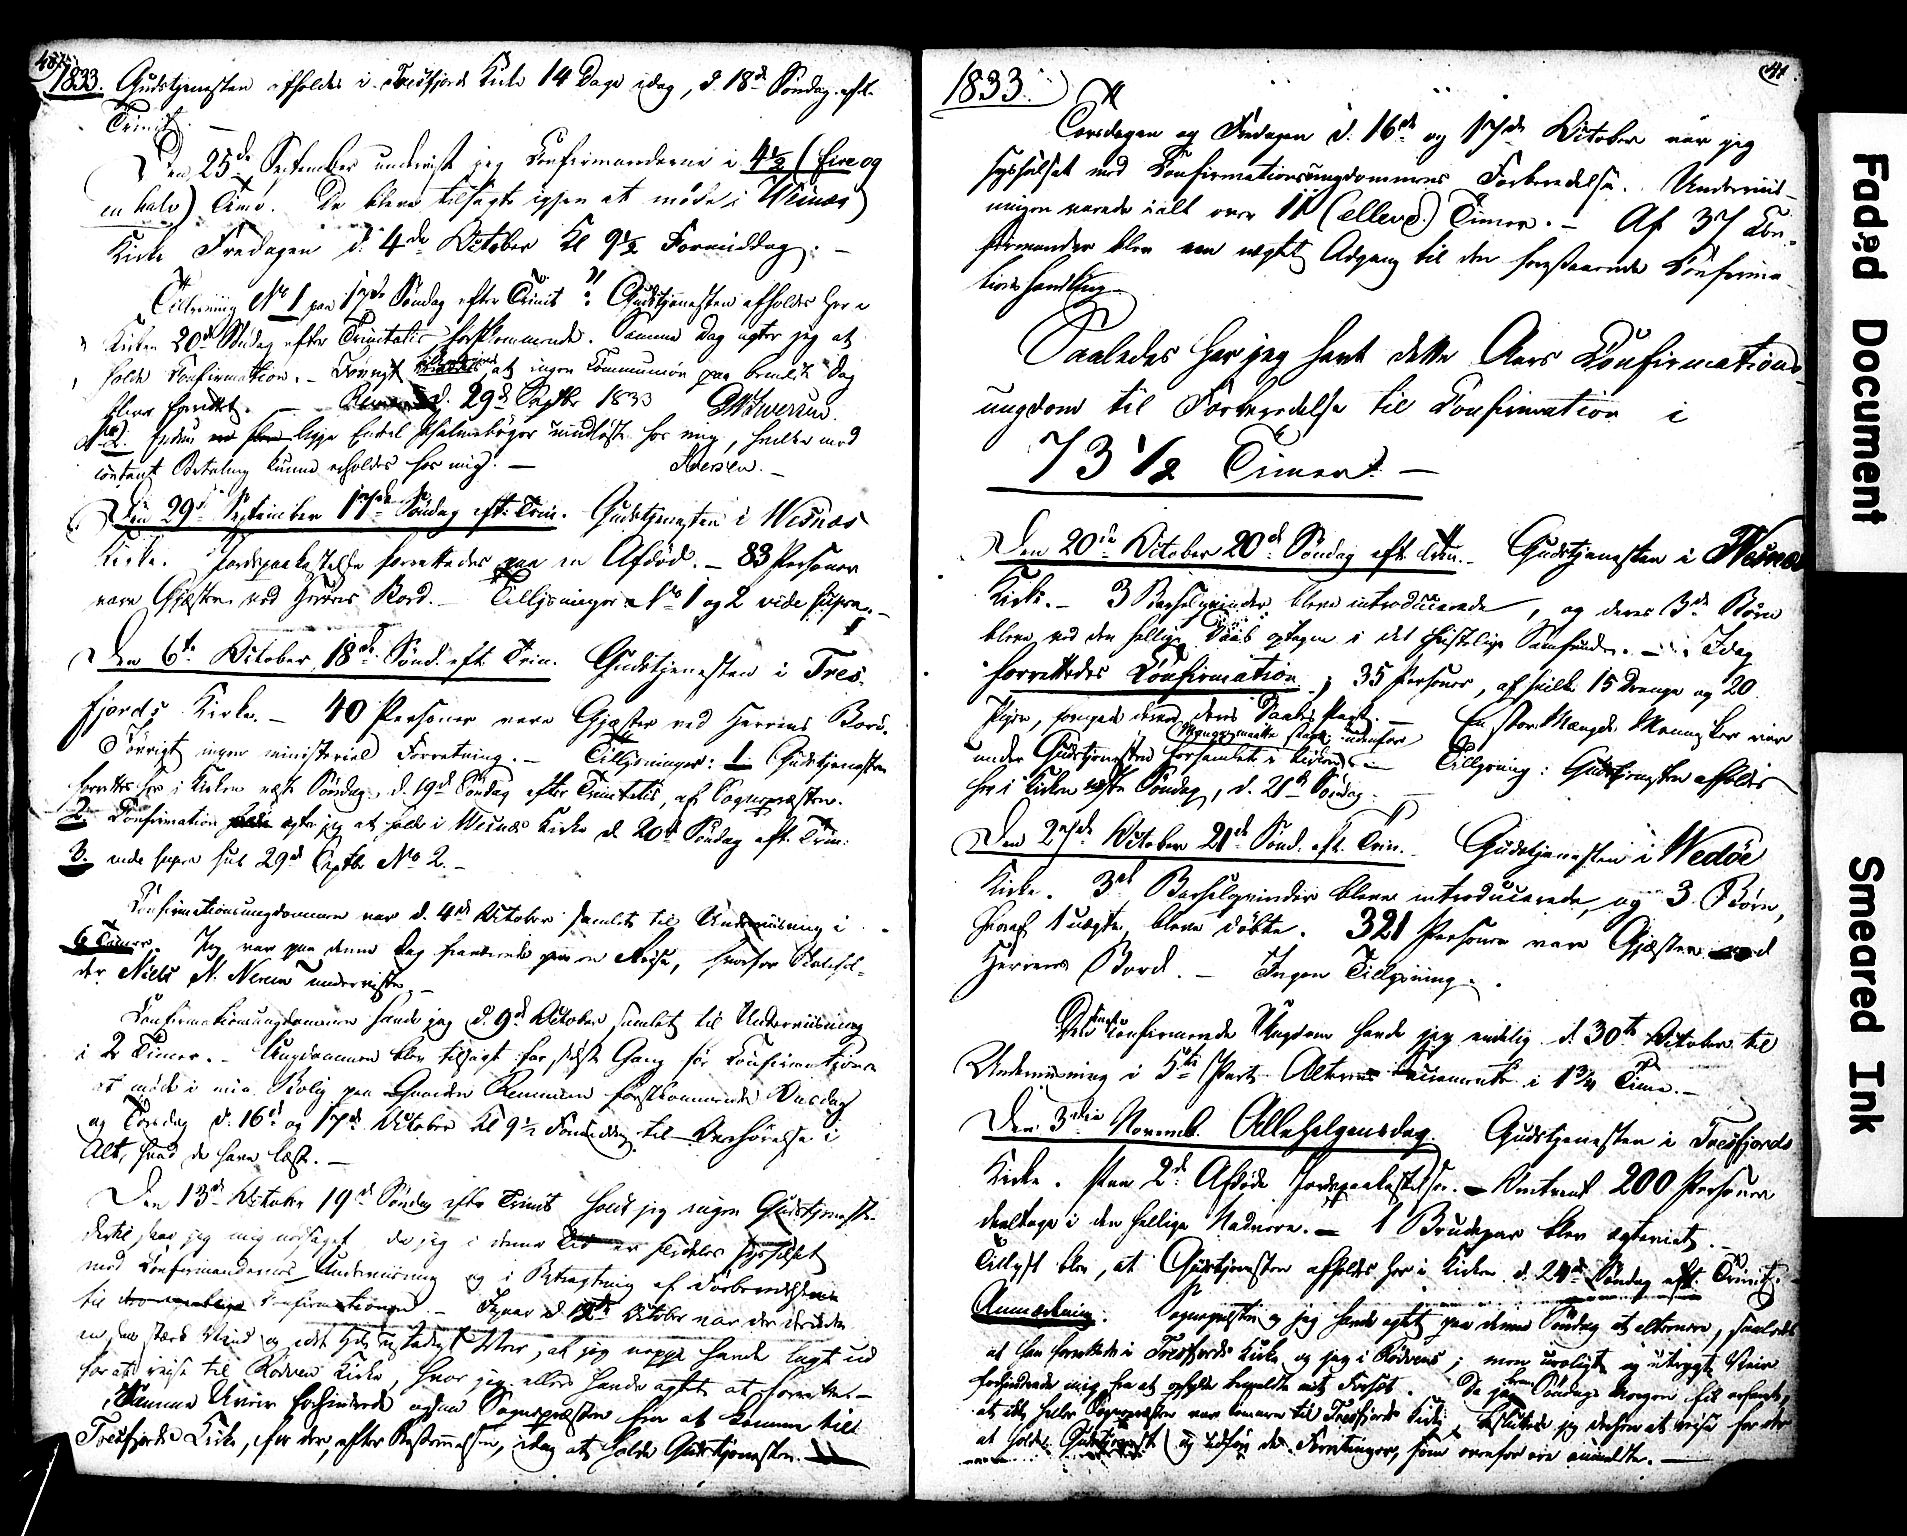 1833. Gudstjenesten afholdes i Tresfjords Kirke 14 Dage idag, d. 18de Søndag eft.
Trinit. —
Den 25de September underviste jeg Confirmanderne i 4½ (fire og
en halv) Time. De bleve tilsagte igjen at møde i Wesnæs
Kirke Fredagen d. 4de October Kl 9½ Formiddag. —
Tillysning No 1 paa 17de Søndag efter Trinit: Gudstjenesten afholdes her i
Kirken 20de Søndag efter Trinitatis førstkommende. Samme Dag agter jeg at
holde Confirmation. — at ingen Communion paa bemeldte Dag
bliver forrettet. — d. 29de Septbr 1833
No 2. Endnu ligge Endeel Psalmebøger uindløste hos mig, hvilke mod
contant Betaling kunne erholdes hos mig. —
Den 29de September 17de Søndag eft. Trin. Gudstjenesten i Wesnæs
Kirke. Jordspaakastelse forrettedes paa en Afdød. — 83 Personer
vare Gjæster ved Herrens Bord. — Tillysninger No 1 og 2 vide supra. —
Den 6te October 18de Sønd. eft. Trin. Gudstjenesten i Tres-
fjords Kirke. — 40 Personer vare Gjæster ved Herrens Bord.
Forøvrigt ingen ministeriel Forretning. — Tillysninger: 1. Gudstjenesten
forrettes her i Kirken næste Søndag, d. 19de Søndag efter Trinitatis, af Sognepræsten.
2. Confirmation agter jeg at holde i Wesnæs Kirke d. 20de Søndag eft. Trin:
3. vide supra sub 29de Septbr No 2. —
Confirmationsungdommen var d. 4de October samlet til Underviisning i
6 Timer. Jeg var paa denne Dag fraværende paa en Reise, hvorfor Skolehol-
der Niels N. underviste. —
Confirmationsungdommen havde jeg d. 9de October samlet til Underviisning
i 2 Timer. — Ungdommen blev tilsagt for sidste Gang før Confirmationen
at møde i min Bolig paa Gaarden førstkommende Onsdag
og Torsdag d. 16de og 17de October Kl 9½ Formiddag til Overhørelse i
Alt, hvad de have læst. —
Den 13de October 19de Søndag efter Trinit holdt jeg ingen Gudstjeneste.
Dertil saae jeg mig nødsaget da jeg i denne Tid er sysselsat
med Confirmandernes Underviisning og i Betragtning af Forberedelsen
til Confirmationen. — October var der desuden
en saa stærk Vind og Veir, at jeg neppe havde lagt ud
for at reise til Rødven Kirke, hvor jeg ellers havde agtet at forrette. —
Samme Uveir forhindrede ogsaa Sognepræsten fra at komme til
Tresfjords Kirke, for der, efter Bestemmelsen, idag at holde Gudstjenesten.
1833.
41
Torsdagen og Fredagen d. 16de og 17de October var jeg
sysselsat med Confirmationsungdommens Forberedelse. Underviis-
ningen varede ialt over 11 (elleve) Timer. — Af 37 Con-
firmander blev een nægtet Adgang til den forestaaende Confirma-
tionshandling.
Saaledes har jeg havt dette Aars Confirmations-
ungdom til Forberedelse til Confirmation i
73 1/2 Timer. —
Den 20de October 20de Søndag eft. Trin. — Gudstjenesten i Wesnæs
Kirke. — 3 Barselqvinder bleve introducerede, og deres 3de Børn
bleve ved den hellige Daab optagne i det christelige Samfund. — Idag
forrettedes Confirmation; 35 Personer, af hvilke 15 Drenge og 20
Piger, deres Daabs Pagt. — En stor Mængde Mennesker var
under Gudstjenesten forsamlet i Kirken — Tillysning: Gudstjenesten afholdes
her i Kirken næste Søndag, d. 21de Søndag.
Den 27de October 21de Sønd. eft. Trin. — Gudstjenesten i Wedøe
Kirke. 3de Barselqvinder bleve introducerede, og 3 Børn,
hvoraf 1 uægte, bleve døbte. 321 Personer vare Gjæster ved
Herrens Bord. — Ingen Tillysning.
Den confirmerede Ungdom havde jeg endelig d. 30te October til
Underviisning i 5te Part Alterens Sacramente i 1¾ Time. —
Den 3die Novemb. Allehelgensdag. Gudstjenesten i Tresfjords
Kirke. Paa 2de Afdøde Jordspaakastelse. — Omtrent 200 Personer
deeltoge i den hellige Nadvere. — 1 Brudepar blev ægteviet. —
Tillyst blev, at Gudstjenesten afholdes her i Kirken d. 24de Søndag eft. Trinit. —
Anmærkning: Sognepræsten og jeg havde agtet paa denne Søndag at alternere, saaledes
at han forrettede i Tresfjords Kirke og jeg i Rødvens; men uroligt og utrygt Veir
forhindrede mig fra at opfylde bemeldte mit Forsæt. Da jeg Søndags Morgen fik erfare,
at ikke heller Sognepræsten var kommen til Tresfjords Kirke, besluttede jeg derfor at reise for der
at holde Gudstjeneste og udføre de Forretninger, som ovenfor ere anmeldte. —
Faded Document
Smeared Ink